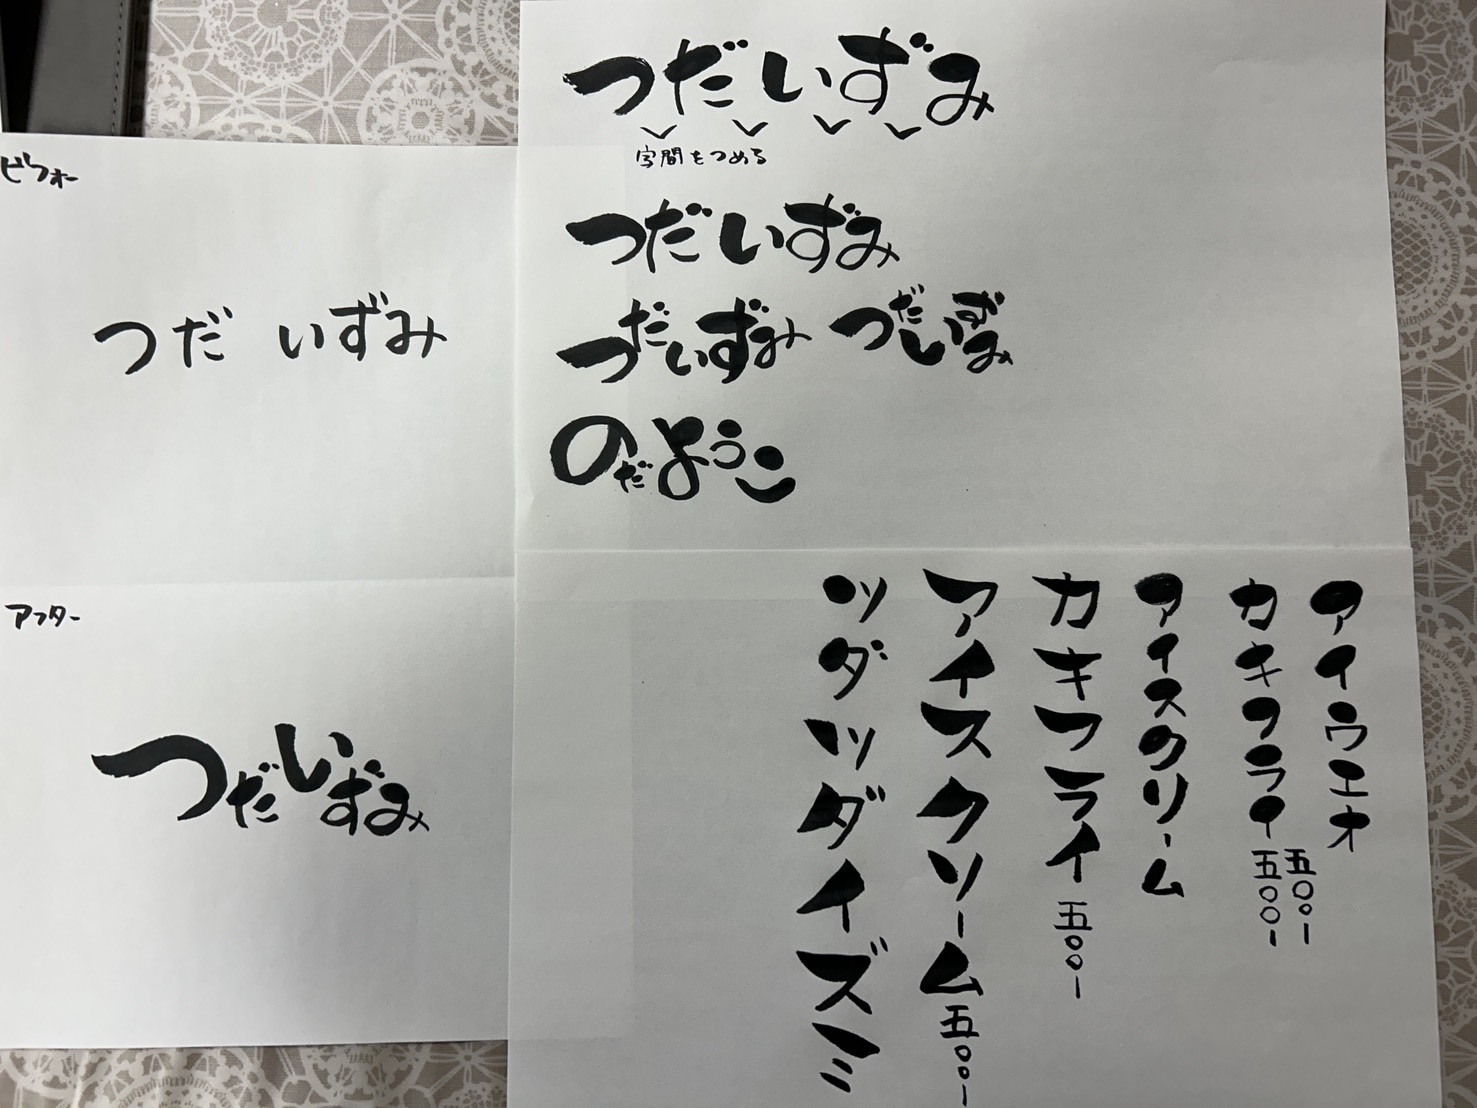 ビフォー
つだ いずみ
アフター
つだいずみ
つだいずみ
字間をつめる
つだいずみ
つだいずみ つだいずみ
のだようこ
アイウエオ
カキフライ 五〇〇ー
五〇〇ー
アイスクリーム
カキフライ 五〇〇ー
アイスクリーム 五〇〇ー
ツダツダイズミ